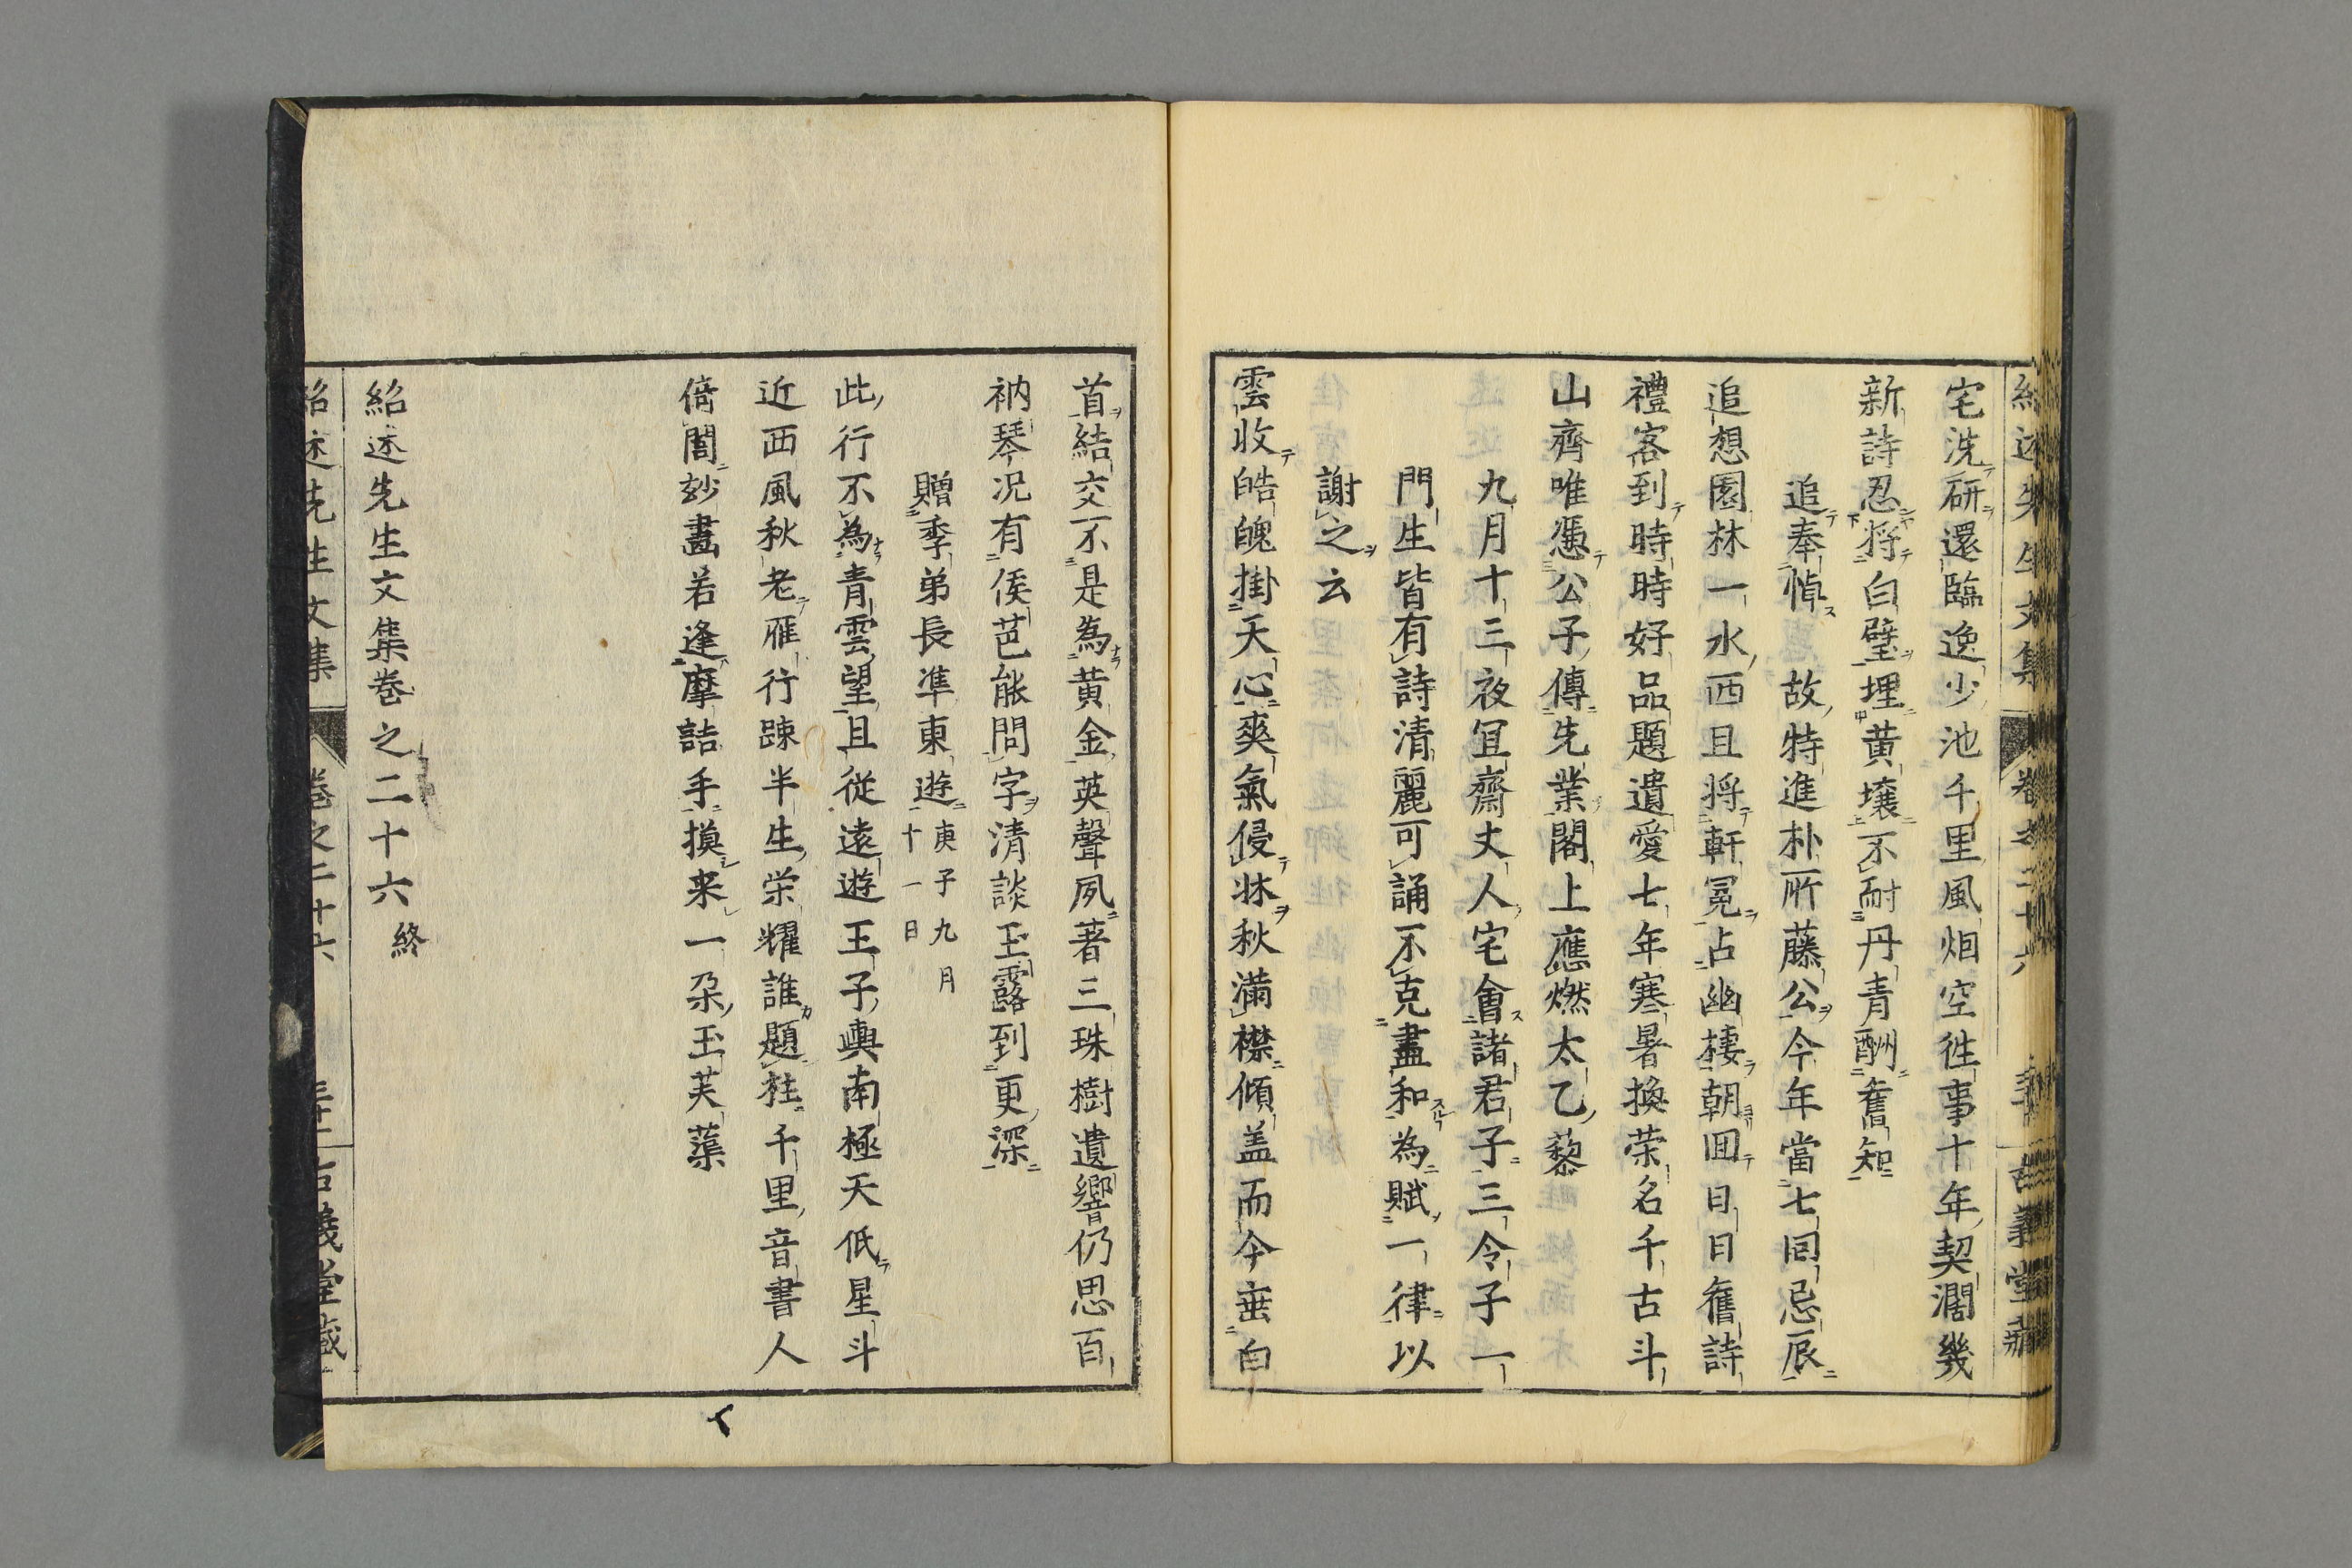 宅洗研還臨逸少池千里風烟空徃事十年契濶幾
新詩忍將白璧埋黄壤不耐丹青酬舊知
追奉悼 故特進朴所藤公今年當七囘忌辰
追想園林一水西且將軒冕占幽棲朝囬日日舊詩
禮客到時時好品題遺愛七年寒暑換荣名千古斗
山齊唯憑公子傳先業閣上應燃太乙藜
九月十三夜冝齋丈人宅會諸君子三令子一
門生皆有詩清麗可誦不克盡和為賦一律以
謝之云
雲收皓魄掛天心爽氣侵牀秋滿襟傾盖而今垂白
首結交不是為黄金英聲夙著三珠樹遺響仍思百
衲琴况有侯芭能問字清談玉露到更深
贈季弟長準東遊
庚子九月
十一日
此行不為青雲望且従遠遊王子輿南極天低星斗
近西風秋老雁行踈半生栄耀誰題柱千里音書人
倚閭妙畵若逢摩詰手摸来一朶玉芙蕖
紹述先生文集巻之二十六終
紹述先生文集
巻之二十六
古義堂藏